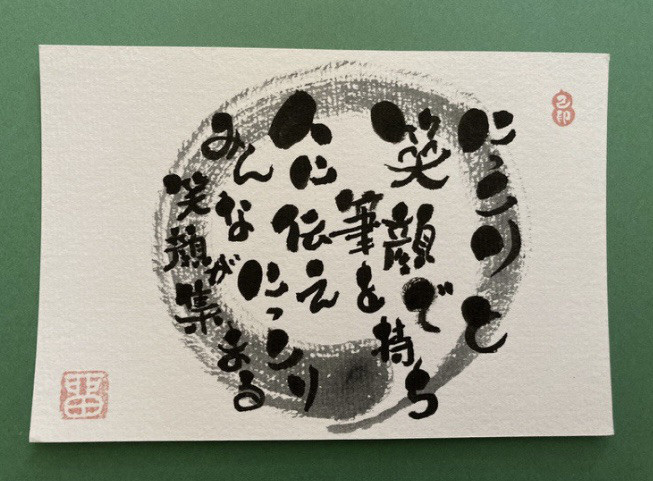 にっこりと
笑顔で
筆を持ち
人に伝え
みんなにっこり
笑顔が集まる